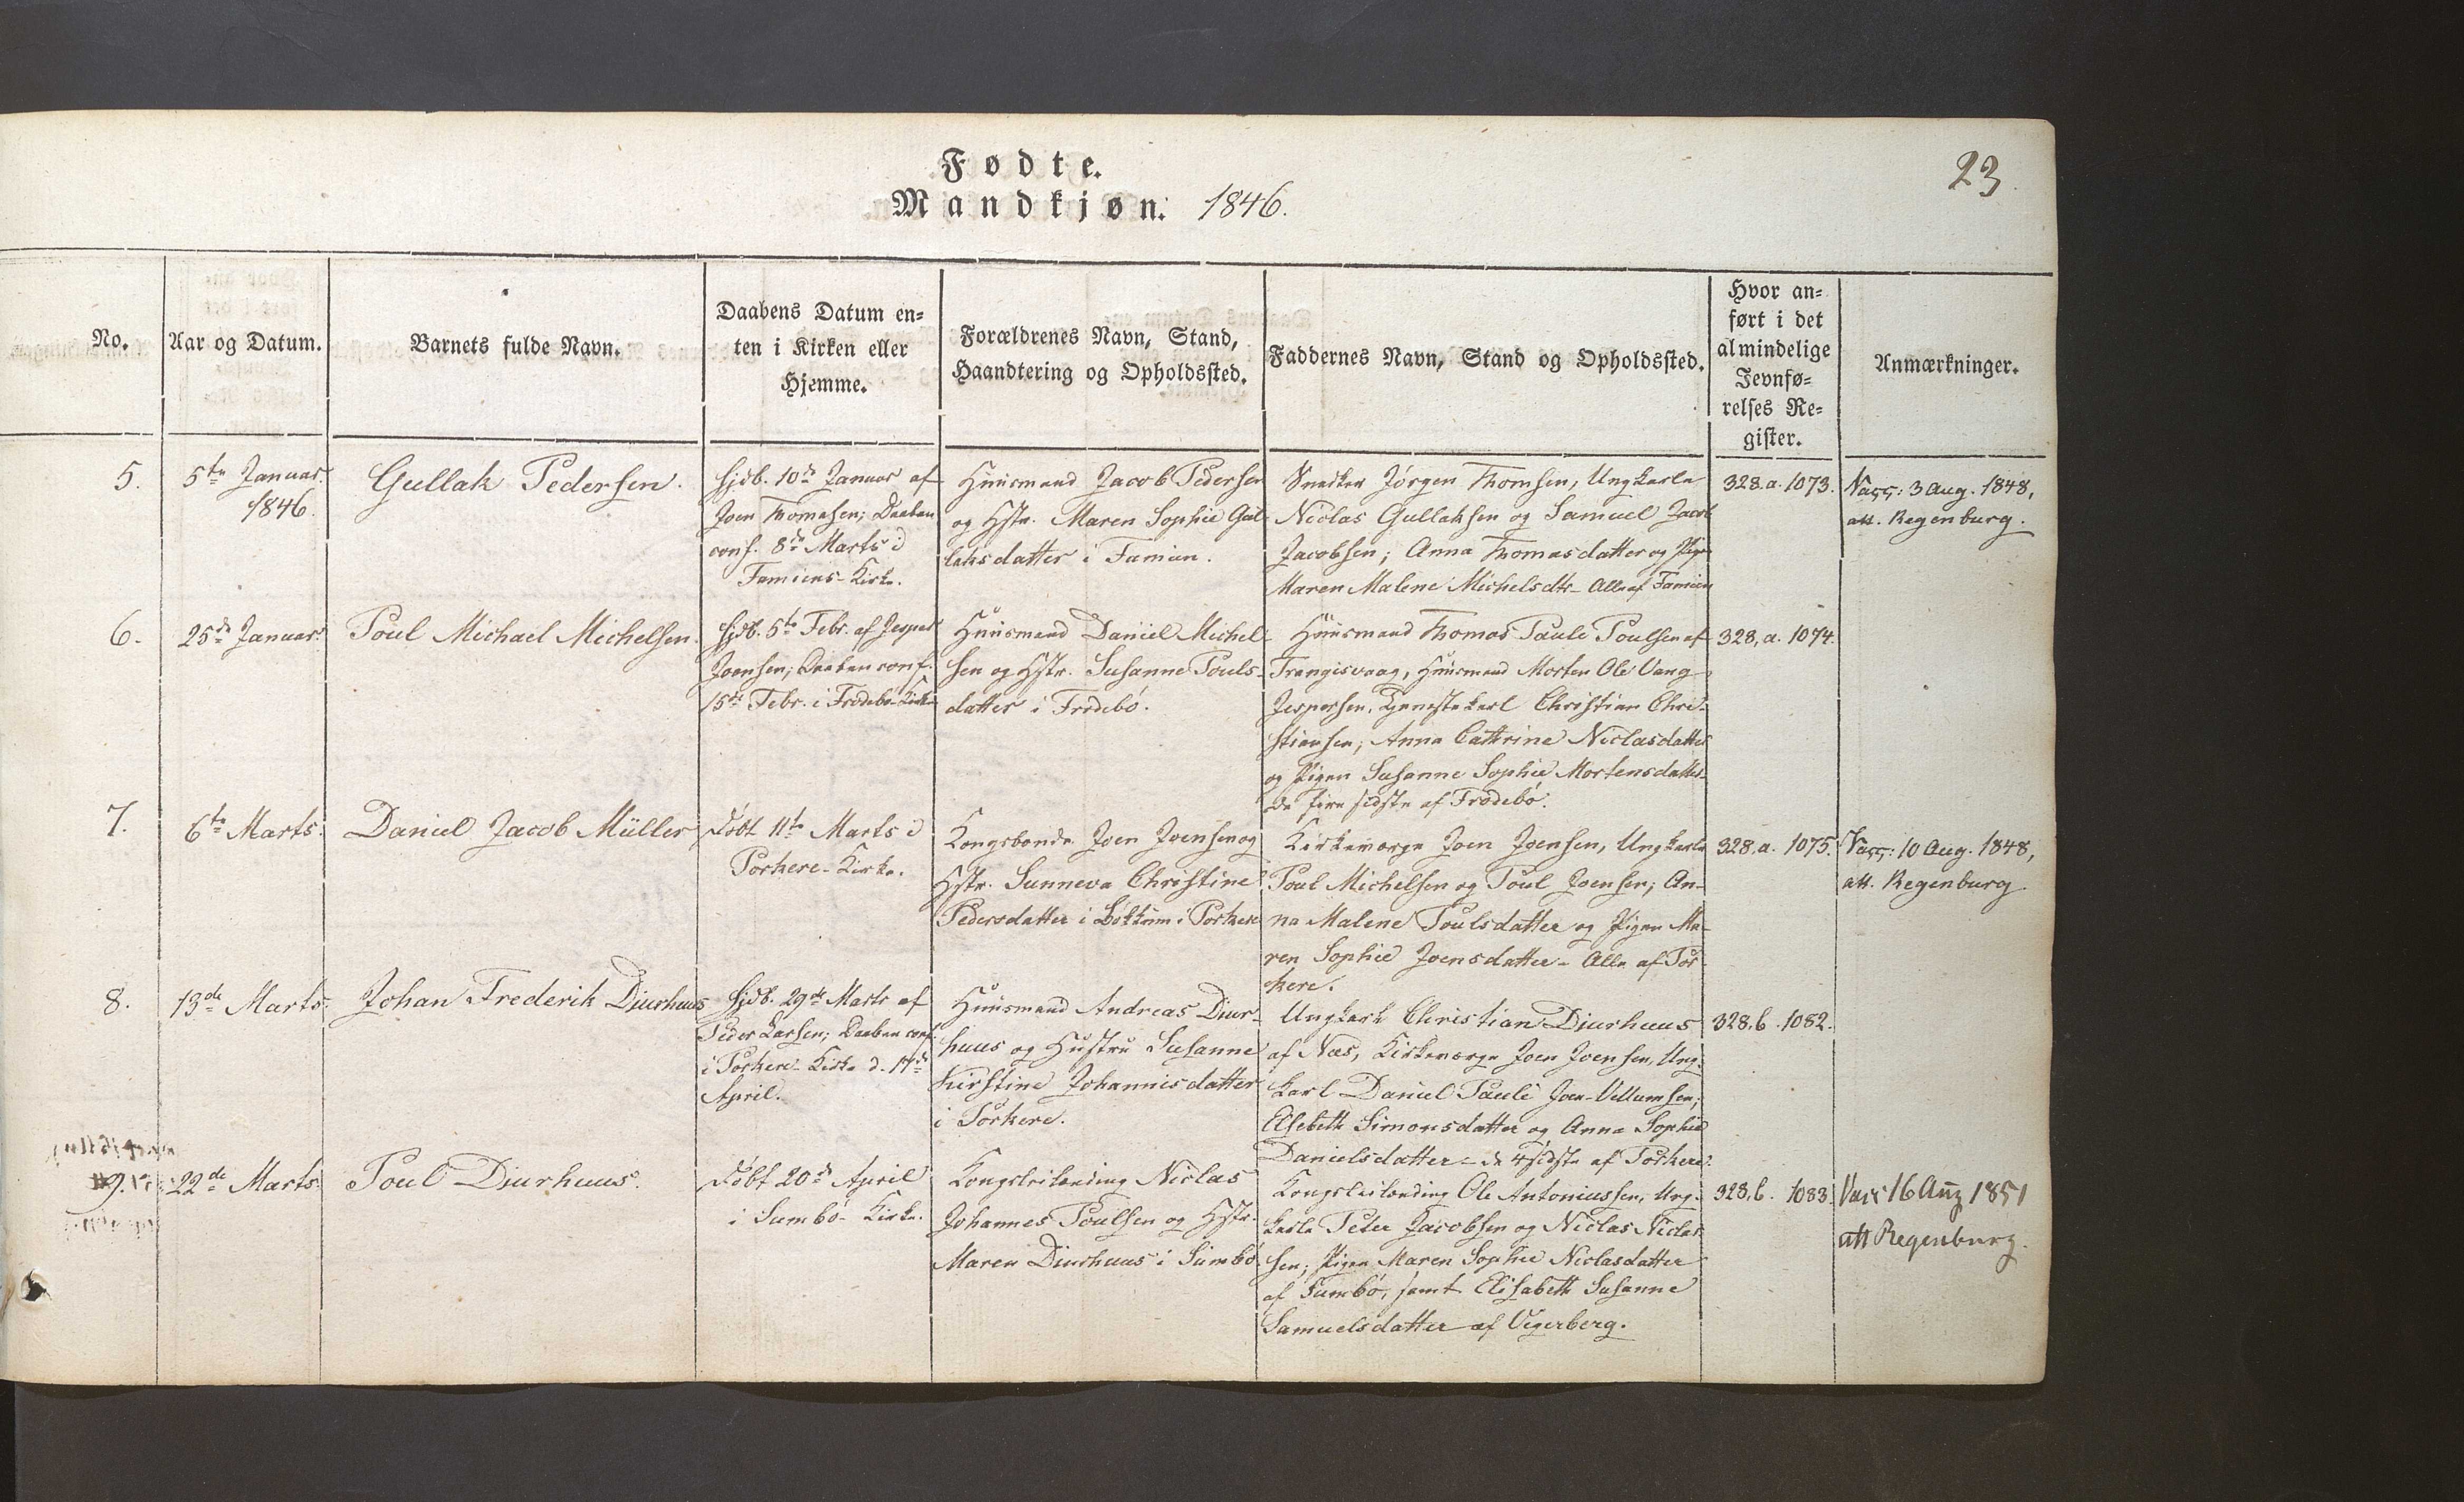 23
Fødte.
Mandkjøn. 1846.
No.
Aar og Datum.
Barnets fulde Navn.
Daabens Datum en-
ten i Kirken eller
Hjemme.
Forældrenes Navn, Stand,
Haandtering og Opholdssted.
Faddernes Navn, Stand og Opholdssted.
Hvor an-
ført i det
almindelige
Jevnfø-
relses Re-
gister.
Anmærkninger.
5.
5te Januar
1846.
Gullak Pedersen.
Hjdb. 10de Januar af
Joen Thomasen; Daaben
conf. 8de Marts i
Famiens-Kirke.
Huusmand Jacob Pedersen
og Hstr. Maren Sophie Gul-
laksdatter i Famien.
Snedker Jörgen Thomsen, Ungkarle
Niclas Gullaksen og Samuel Jacob
Jacobsen; Anna Thomasdatter og Pigen
Maren Malene Michelsdtr - Alle af Famien
328.a. 1073.
Vacc: 3 Aug. 1848,
att. Regenburg.
6.
25de Januar.
Poul Michael Michelsen.
Hjdb. 5te Febr. af Jesper
Joensen; Daaben conf.
15de Febr. i Frodebö-Kirke
Huusmand Daniel Michel-
sen og Hstr. Susanne Pouls-
datter i Frodebö.
Huusmand Thomas Pauli Poulsen af
Trangisvaag, Huusmand Morten Ole Vang
Jespersen, Tjenestekarl Christian Chri-
stiansen; Anna Cathrine Niclasdatter
og Pigen Susanne Sophie Mortensdatter -
De fire sidste af Frodebö.
328, a. 1074.
7.
6te Marts.
Daniel Jacob Müller
Döbt 11te Marts i
Porkere-Kirke.
Kongsbonde Joen Joensen og
Hstr. Sunneva Christine
Pedersdatter i Lokkum i Porkere
Kirkeværge Joen Joensen, Ungkarle
Poul Michelsen og Poul Joensen; An-
na Malene Poulsdatter og Pigen Ma-
ren Sophie Joensdatter - Alle af Por-
kere.
328, a. 1075.
Vacc: 10 Aug. 1848,
att. Regenburg.
8.
13de Marts.
Johan Frederik Djurhuus
Hjdb. 29de Marts af
Peder Larsen; Daaben conf.
i Porkere-Kirke d. 14de
April.
Huusmand Andreas Djur-
huus og Hustru Susanne
Kirstine Johannisdatter
i Porkere.
Ungkarl Christian Djurhuus
af Næs, Kirkeværge Joen Joensen, Ung-
karl Daniel Pauli Joen-Vellumsen;
Elsebeth Simonsdatter og Anna Sophie
Danielsdatter - de 4 sidste af Porkere.
328, b. 1082.
9.
22de Marts.
Poul Djurhuus.
Döbt 20de April
i Sumbö-Kirke.
Kongsleilænding Niclas
Johannes Poulsen og Hstr.
Maren Djurhuus i Sumbö.
Kongsleilænding Ole Antoniussen, Ung-
karle Peter Jacobsen og Niclas Niclas-
sen; Pigen Maren Sophie Niclasdatter
af Sumbö, samt Elisabeth Susanne
Samuelsdatter af Vigerberg.
328, b. 1083.
Vacc 16 Aug 1851
att Regenburg.